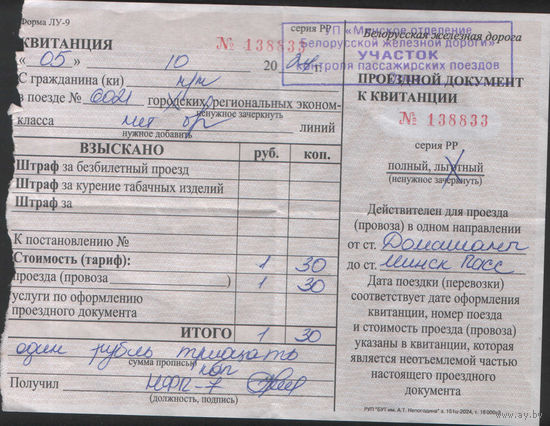 Форма ЛУ-9
серия РР
КВИТАНЦИЯ № 138833
« 05 » 10 20 г.
С гражданина (ки) н/п
в поезде № 6021 городских, региональных эконом-
ненужное зачеркнуть
класса линий
нужное добавить
ВЗЫСКАНО руб. коп.
Штраф за безбилетный проезд
Штраф за курение табачных изделий
Штраф за
К постановлению №
Стоимость (тариф): 1 30
проезда (провоза ) 1 30
услуги по оформлению
проездного документа
ИТОГО 1 30
один рубль тридцать
сумма прописью
коп
Получил НФП-7
(должность, подпись)
РУП «Минское отделение
Белорусской железной дороги»
УЧАСТОК
контроля пассажирских поездов
Белорусская железная дорога
ПРОЕЗДНОЙ ДОКУМЕНТ
К КВИТАНЦИИ
№ 138833
серия РР
полный, льготный
(ненужное зачеркнуть)
Действителен для проезда
(провоза) в одном направлении
от ст. Домашаны
до ст. Минск Пасс
Дата поездки (перевозки)
соответствует дате оформления
квитанции, номер поезда
и стоимость проезда (провоза)
указаны в квитанции, которая
является неотъемлемой частью
настоящего проездного
документа
РУП "БУТ им. А.Т. Непогодина" з. 151ц-2024, т. 16 000х3
www.ay.by